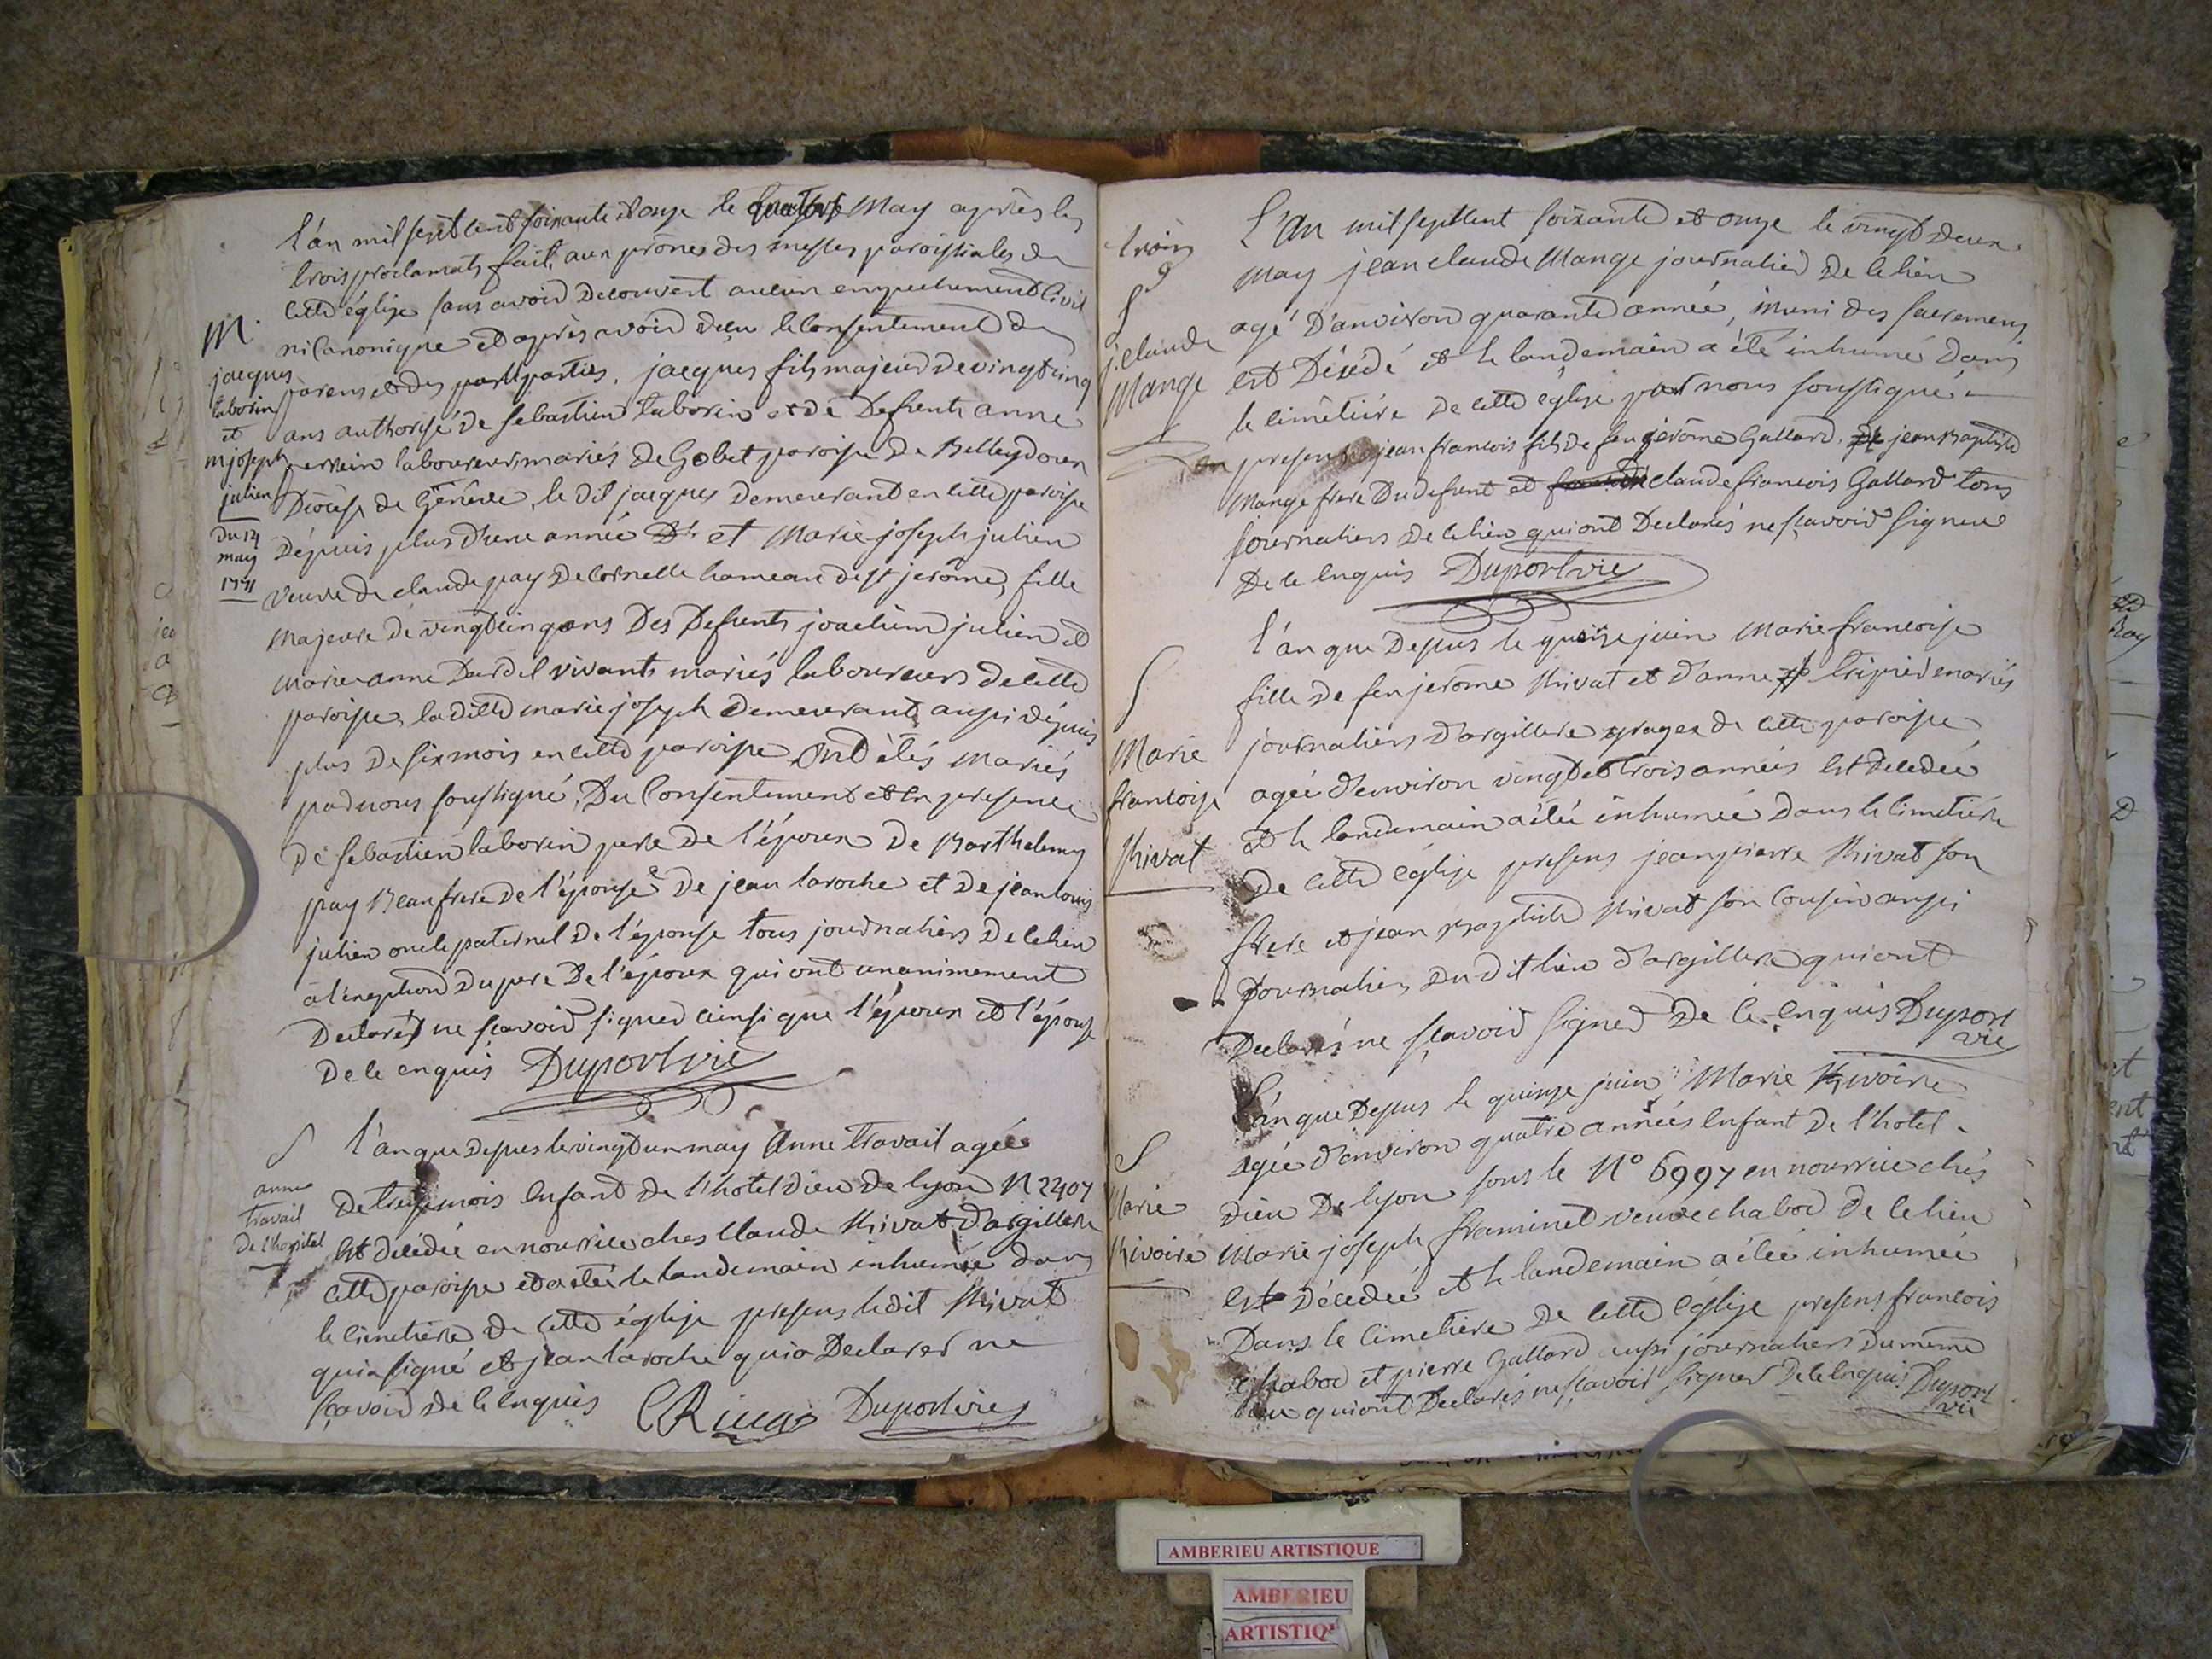 l'an mil sept cent soixante et onze le quatorze May après les
trois proclamats fait aux prônes des messes paroissiales de
cette église sans avoir decouvert aucun empechement Civil
ni Canonique et après avoir vu le Consentement de
M.
jacques
laborin
et
mjoseph
julien
Du 14
may
1771
parens et des parties, jacques fils majeur de vingt cinq
ans authorisé de sebastien laborin et de Defunte anne
perrein laboureurs mariés de Gobet paroisse de Belleydoux
Diocèse de Génève, le dit jacques demeurant en cette paroisse
Dépuis plus d'une année et Marie joseph julien
veuve de claude pay de Cornelle hameau de st jerôme, fille
majeure de vingt cinq ans Des Defunts joachim julien et
marie anne Dardel vivants mariés laboureurs de cette
paroisse, la ditte marie joseph demeurant aussi dépuis
plus de six mois en cette paroisse, ont étés mariés
par nous soussigné, Du Consentement et en presence
De sebastien laborin pere de l'époux De Barthelemy
pay Beaufrere de l'épouse De jean laroche et de jean louis
julien oncle paternel de l'épouse tous journaliers de ce lieu
à l'exeption du pere De l'époux qui ont unanimement
Declarés ne scavoir signer ainsi que l'époux et l'épouse
De ce enquis Duport vic
S
anne
travail
De l'hopital
l'an que dessus le vingt un may Anne travail agée
De treize mois enfant de l'hotel dieu de lyon N. 2407
est decedée en nourrice ches Claude Rivat d'argillere
cette paroisse et a etée le landemain inhumée dans
le cimetiere de cette église presens ledit Rivat
qui a signé et jean laroche qui a Declarer ne
scavoir de ce enquis C Rivat Duport vic
trois
9
S
j. claude
Mange
L'An mil sept cent soixante et onze le vingt deux
may jean claude Mange journalier De ce lieu
agé D'anviron quarante année, muni des sacremens
est Décédé et le landemain a été inhumé dans
le cimêtiére de cette église par nous soussigné
en presence jean francois fils de feu jérôme Gallard, jean Baptiste
Mange frere Du defunt et claude francois Gallard tous
journaliers De ce lieu qui ont Declarés ne scavoir signer
De ce enquis Duport vic
S
Marie
francoise
Rivat
l'an que Dessus le quinze juin Marie francoise
fille de feu jerôme Rivat et d'anne mariés
journaliers d'argillere de cette paroisse
agée d'environ vingt et trois années est decedée
et le landemain a été inhumée Dans le Cimetière
De cette église presens jean pierre Rivat son
frere et jean Baptiste Rivat son Cousin aussi
journaliers Du Dit lieu d'argillere qui ont
Declarés ne scavoir signer De ce enquis Duport
vic
S
Marie
Rivoire
l'an que Dessus le quinze juin Marie Rivoire
agée d'environ quatre années enfant De l'hotel
Dieu De lyon sous le N° 6997 en nourrice ches
Marie joseph framinet veuve chabod De ce lieu
est Décedée et le landemain a été inhumée
Dans le Cimetiére De cette église presens francois
chabod et pierre Gallard aussi journaliers Du même
lieu qui ont Declarés ne scavoir signer De ce enquis Duport
vic
AMBERIEU ARTISTIQUE
AMBERIEU
ARTISTIQ